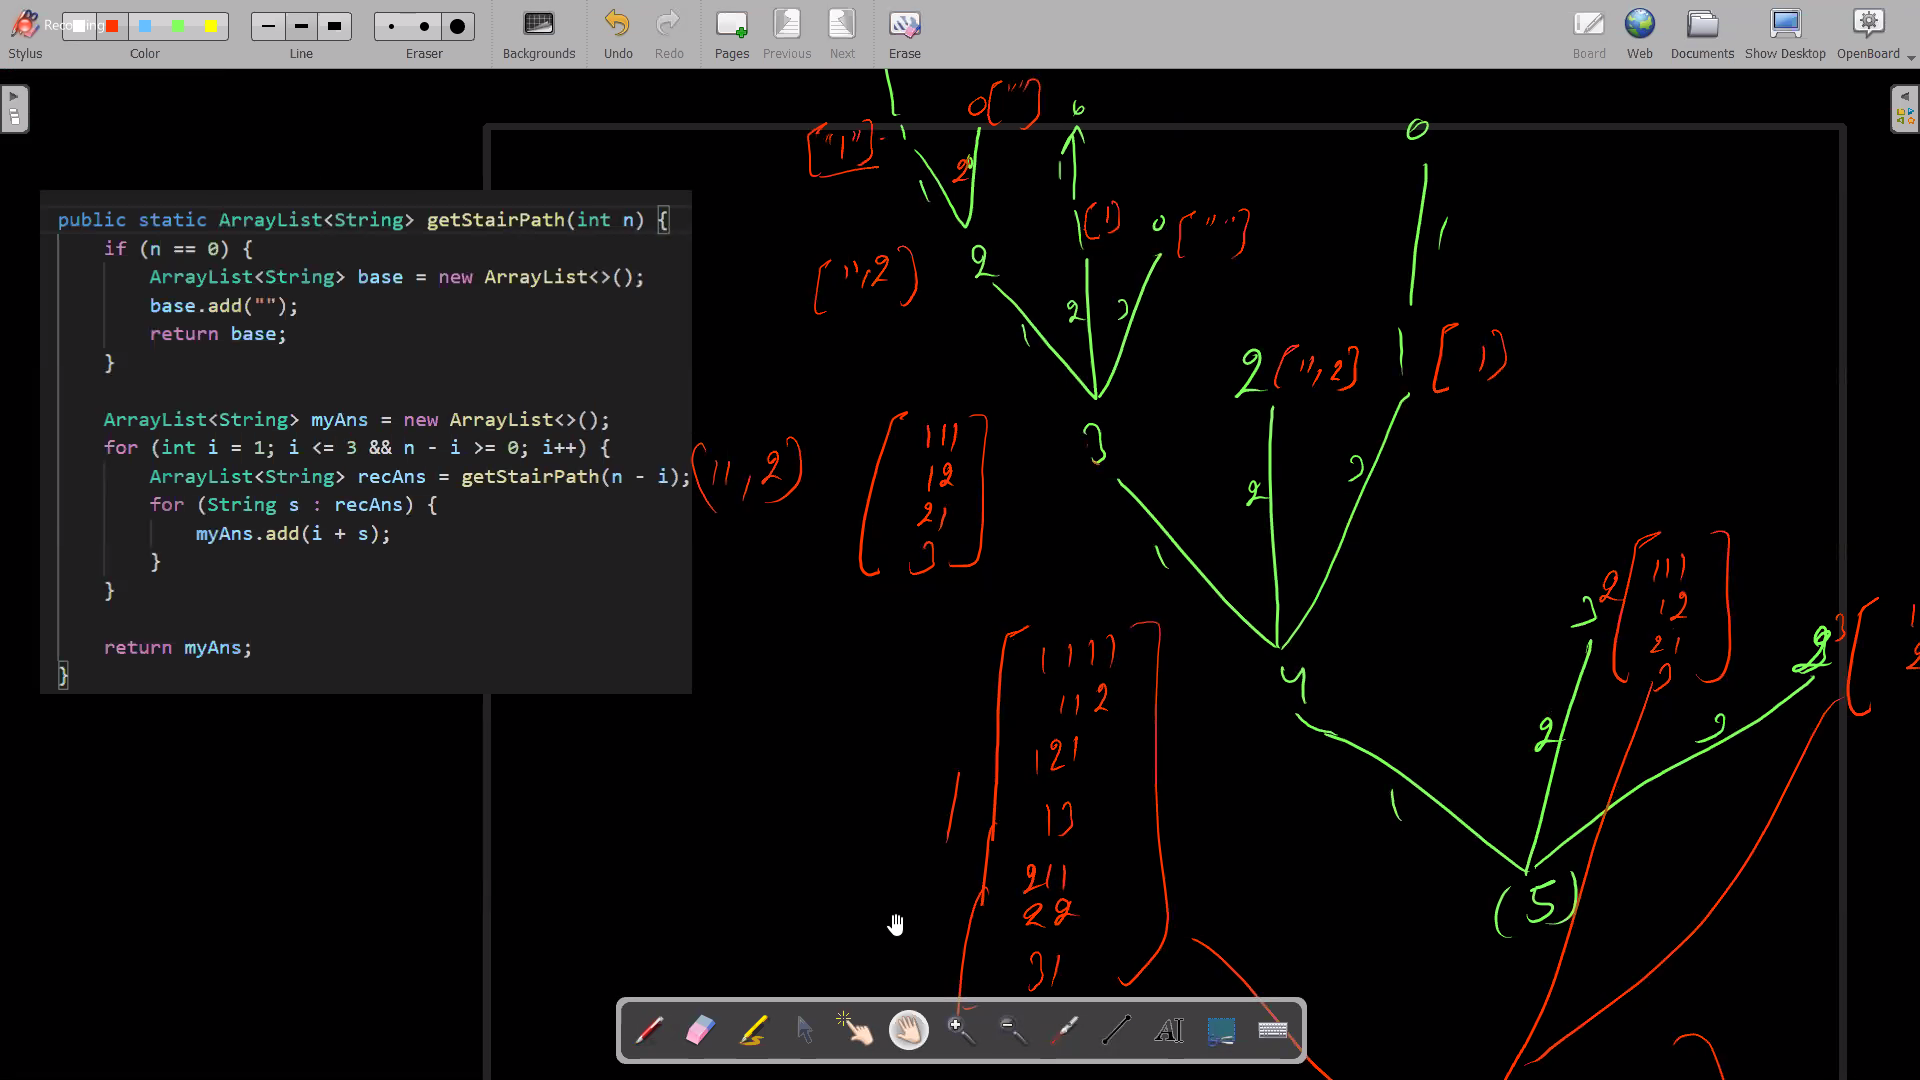 Recording
Stylus
Color
Line
Eraser
Backgrounds
Undo
Redo
Pages
Previous
Next
Erase
Board
Web
Documents
Show Desktop
OpenBoard
public static ArrayList<String> getStairPath(int n) {
if (n == 0) {
ArrayList<String> base = new ArrayList<>();
base.add("");
return base;
}
ArrayList<String> myAns = new ArrayList<>();
for (int i = 1; i <= 3 && n - i >= 0; i++) {
ArrayList<String> recAns = getStairPath(n - i);
for (String s : recAns) {
myAns.add(i + s);
}
}
return myAns;
}
0 [""]
0
0
["1"]
1
1
2
1
1
[1]
0 [""]
2
[11,2]
1
1
2
3
2 [11,2]
1
[1]
3
[11,2]
111
12
21
3
1
2
3
4
1111
112
121
13
211
22
31
1
1
2
3
3
2
111
12
21
3
2
3
(5)